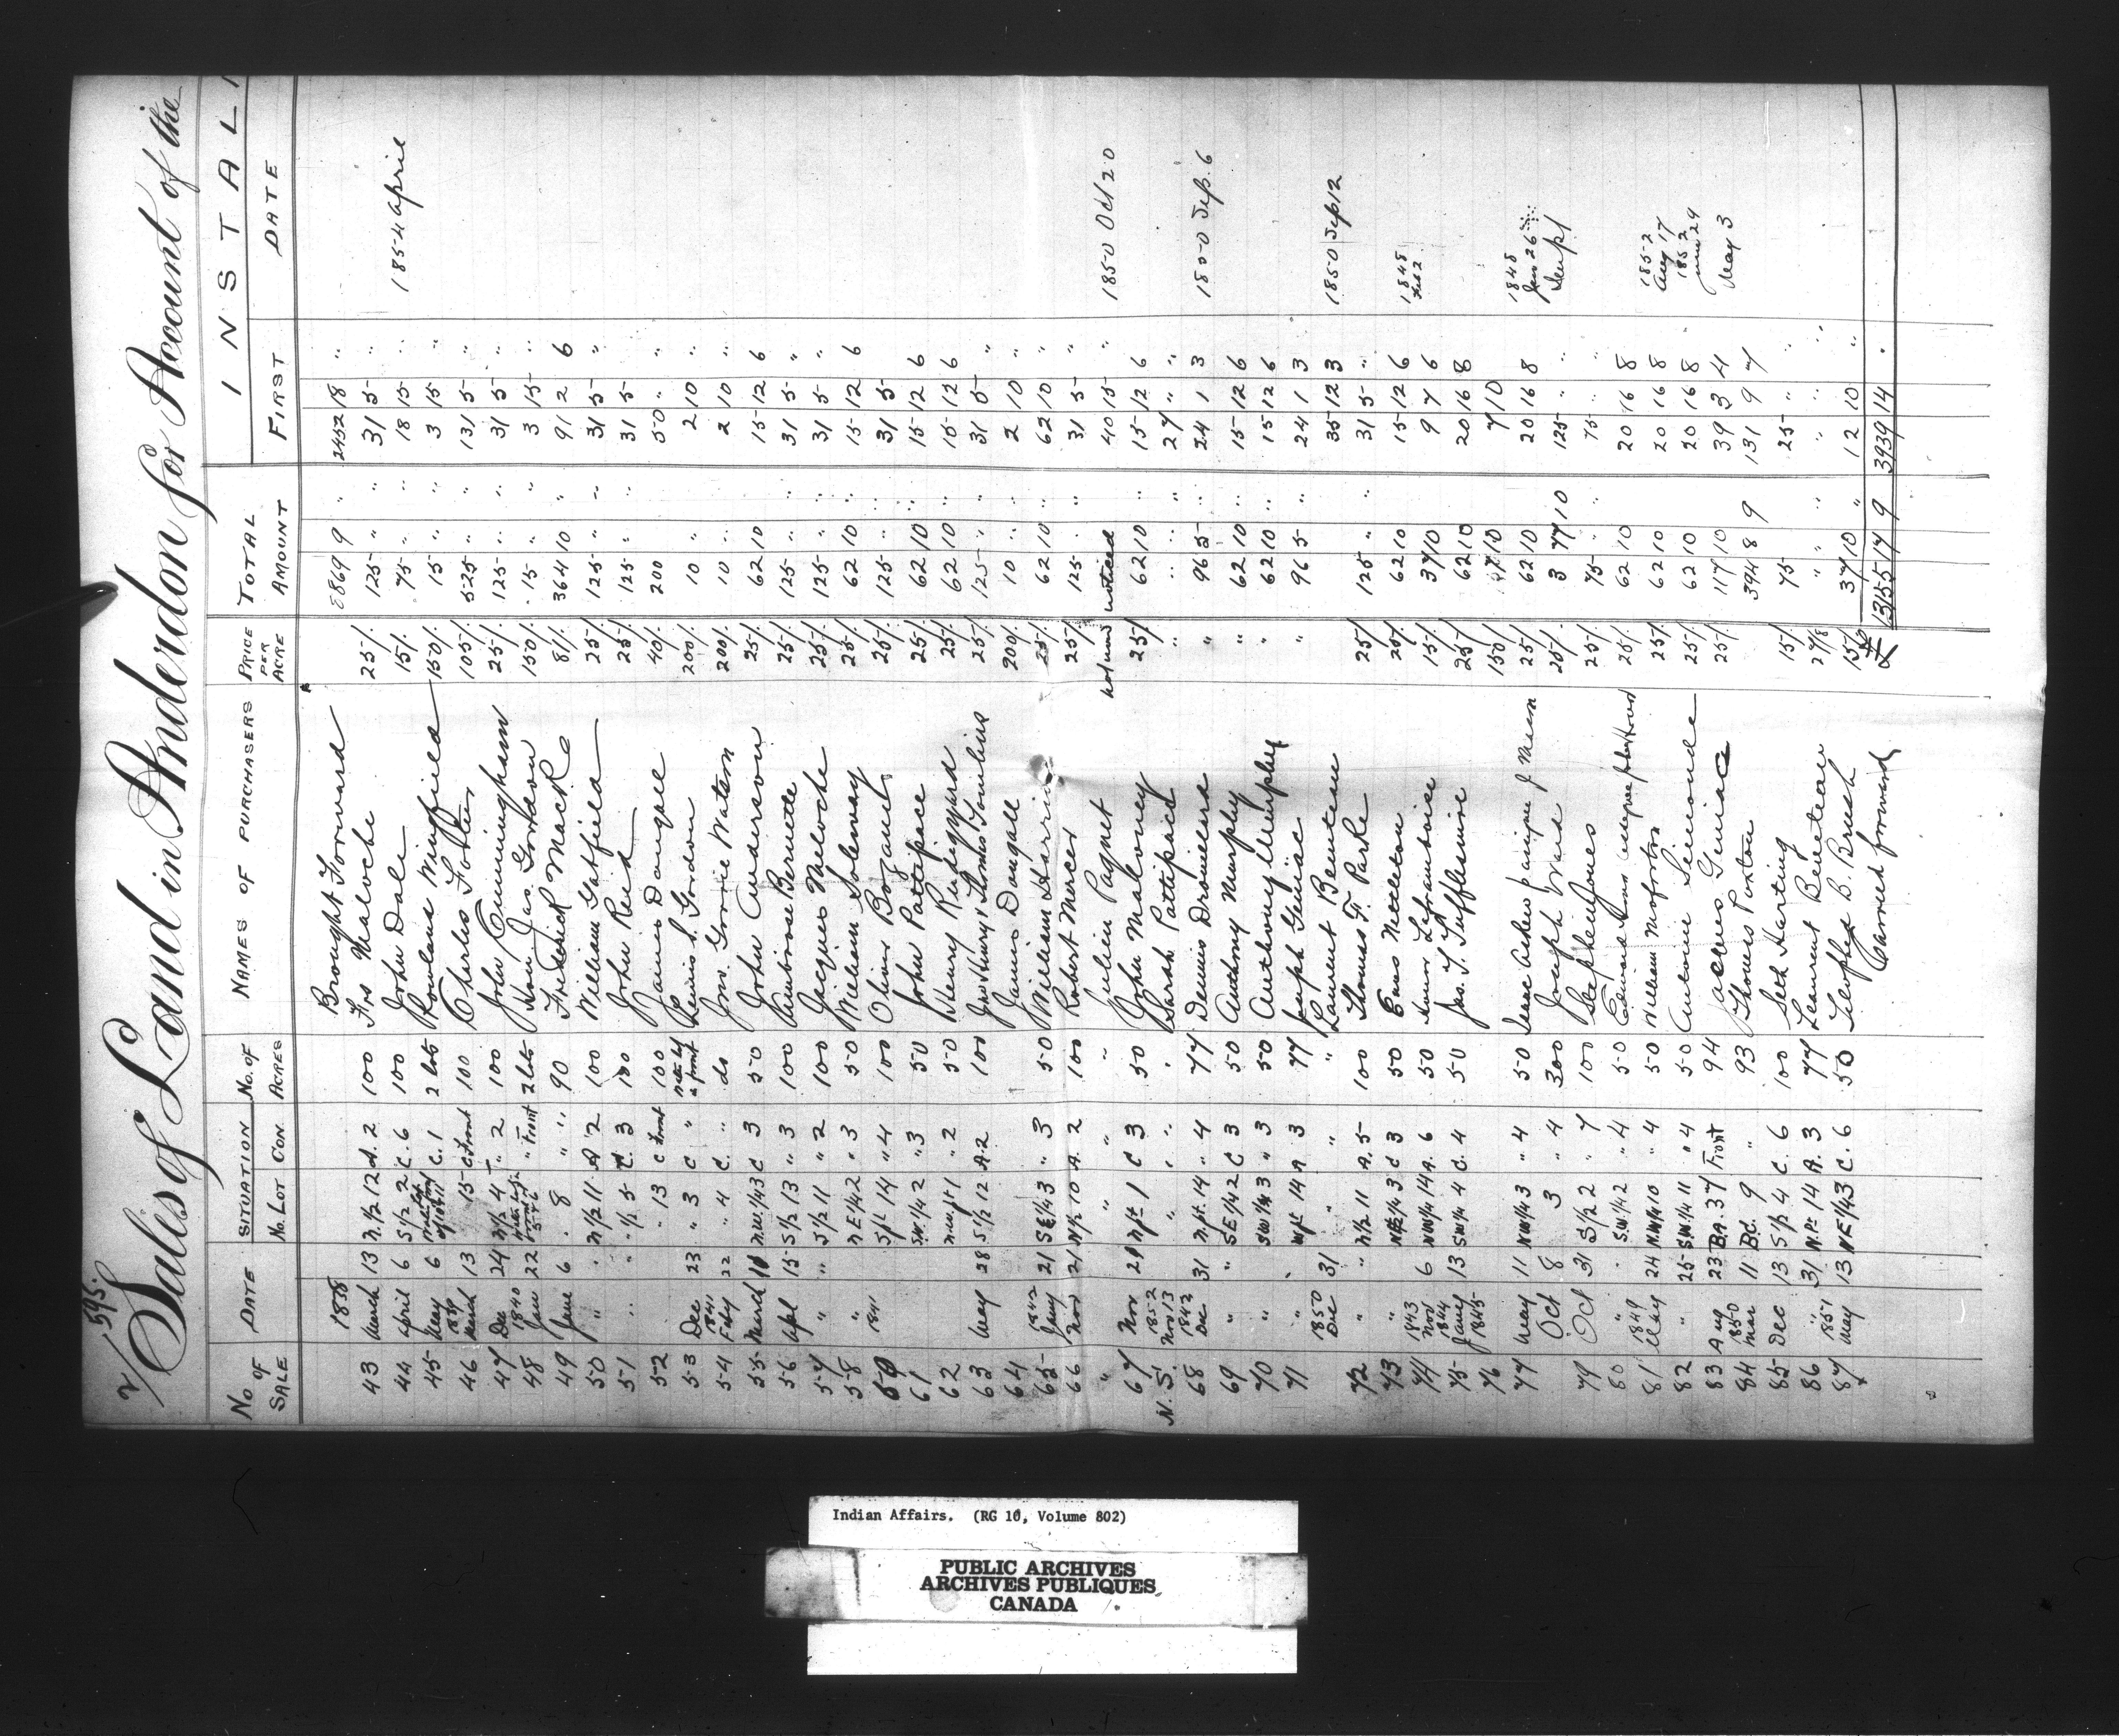 2/ 595.
Sales of Land in Anderdon for Account of the
No of SALE DATE SITUATION No. LOT CON. No. of ACRES NAMES OF PURCHASERS PRICE PER ACRE TOTAL AMOUNT INSTAL
FIRST DATE
1838 Brought Forward 8869 9 " 2452 18 "
43 March 13 N.1/2 12 A. 2 100 Frs Maloche 25/. 125 " " 31 5 "
44 April 6 S1/2 2 C. 6 100 John Dale 15/. 75 " " 18 15 " 1854 April
45 May 6 C. 1 2 lots Rowland Wingfield 150/. 15 " " 3 15 "
46 1839 March 13 15 C. Front 100 Charles Fortier 105/. 525 " " 131 5 "
47 Dec 24 N1/2 4 " 2 100 John Cunningham 25/. 125 " " 31 5 "
48 1840 Jan 22 " Front 2 lots Hon Jas. Gordon 150/. 15 " " 3 15 "
49 June 6 " 8 " " 90 Frederick Mack 81/. 364 10 " 91 2 6
50 " " N1/2 11 A 2 100 William Gatfield 25/. 125 " " 31 5 "
51 " " " 1/2 5 C. 3 100 John Reid 25/. 125 " " 31 5
52 " 13 C Front 100 James Dougall 40/. 200 50 " "
53 Dec 23 " 3 C " Lewis G. Gordon 200/. 10 " 2 10 "
54 1841 Feby 22 " 4 C. " do Jno. Gorrie Watson 200/. 10 " 2 10 "
55 March 10 N.W.1/4 3 C 3 50 John Anderson 25/. 62 10 15 12 6
56 Apl 15 S1/2 13 " 3 100 Ambroise Bernette 25/. 125 " " 31 5 "
57 " " S1/2 11 " 2 100 Jacques Meloche 25/. 125 " " 31 5 "
58 " N E 1/4 2 " 3 50 William Solenway 25/. 62 10 " 15 12 6
59 1841 Spt 14 " 4 100 Oliver Bozanet 25/. 125 " " 31 5
61 S.W.1/4 2 " 3 50 John Pattipiece 25/. 62 10 " 15 12 6
62 N.W.pt 1 " 2 50 Henry Rudgyard 25/. 62 10 " 15 12 6
63 May 28 S1/2 12 A. 2 100 25/. 125 " " 31 5 "
64 James Dougall 200/. 10 " 2 10 "
65 1842 Jany 21 SE1/4 3 " 3 50 William Harris 25/. 62 10 " 62 10 "
66 Nov 21 N1/2 10 A. 2 100 Robert Mercer 25/. 125 " " 31 5 "
" " " " Julien Paquet not und noticed 40 15 " 1850 Oct 20
67 Nov 29 Npt 1 C 3 50 John Maloney 25/. 62 10 " 15 12 6
N.S. 1852 Nov 13 " " " Sarah Pattipiece " " " " 27 " "
68 1842 Dec 31 Npt. 14 " 4 77 Dennis Drouillard " 96 5 " 24 1 3 1850 Sep. 6
69 " " SE 1/4 2 C 3 50 Anthony Murphy " 62 10 " 15 12 6
70 " SW 1/4 3 " 3 50 Anthony Murphy " 62 10 " 15 12 6
71 " " Wpt 14 A 3 77 Joseph Geniac " 96 5 " 24 1 3
1850 Dec 31 " " " Laurent Beneteau 35 12 3 1850 Sep 12
72 " " N1/2 11 A. 5 100 Thomas F. Parke 25/. 125 " " 31 5 "
73 " NE1/4 3 C 3 50 Enos Nettleton 25/. 62 10 15 12 6
74 1843 Nov 6 NW1/4 14 A. 6 50 15/. 37 10 9 7 6 1848 Feb 2
75 1844 Jany 13 SW1/4 4 C. 4 50 Jas. T. Tufflesmire 25/. 62 10 20 16 8
76 1845 150/. 37 10 7 10
77 May 11 NW1/4 3 " 4 50 Isaac Askew 25/. 62 10 20 16 8 1848 Jan 26
Oct 8 3 " 4 300 Joseph Ward 25/. 3 77 10 125 " "
79 Oct 31 S1/2 2 " 7 100 Stephen Jones 25/. 75 " " 75 " "
80 " " S.W.1/4 2 " 4 50 25/. 62 10 20 16 8
81 1849 May 24 N.W1/4 10 " 4 50 William Moforton 25/. 62 10 20 16 8 1852 Aug 17
82 " 25 S.W.1/4 11 " 4 50 Antoine Simonde 25/. 62 10 20 16 8 1852 29
83 Aug 23 B.A. 37 Front 94 Jacques Geniac 25/. 117 10 39 3 4 May 3
84 1850 Mar 11 Bd. 9 " 93 Thomas Paxton 394 8 9 131 9 7
85 Dec 13 S1/2 4 C. 6 100 Seth Harting 15/. 75 25 " "
86 " 31 N.Pt 14 A. 3 77 Laurent Beneteau 27/8 " " " " " "
87 1851 May 13 NE1/4 3 C. 6 50 Teofled B. Brush 15/. 37 10 " 12 10 "
Carried forward £ 13155 17 9 3939 14 .
Indian Affairs. (RG 10, Volume 802)
PUBLIC ARCHIVES
ARCHIVES PUBLIQUES
CANADA